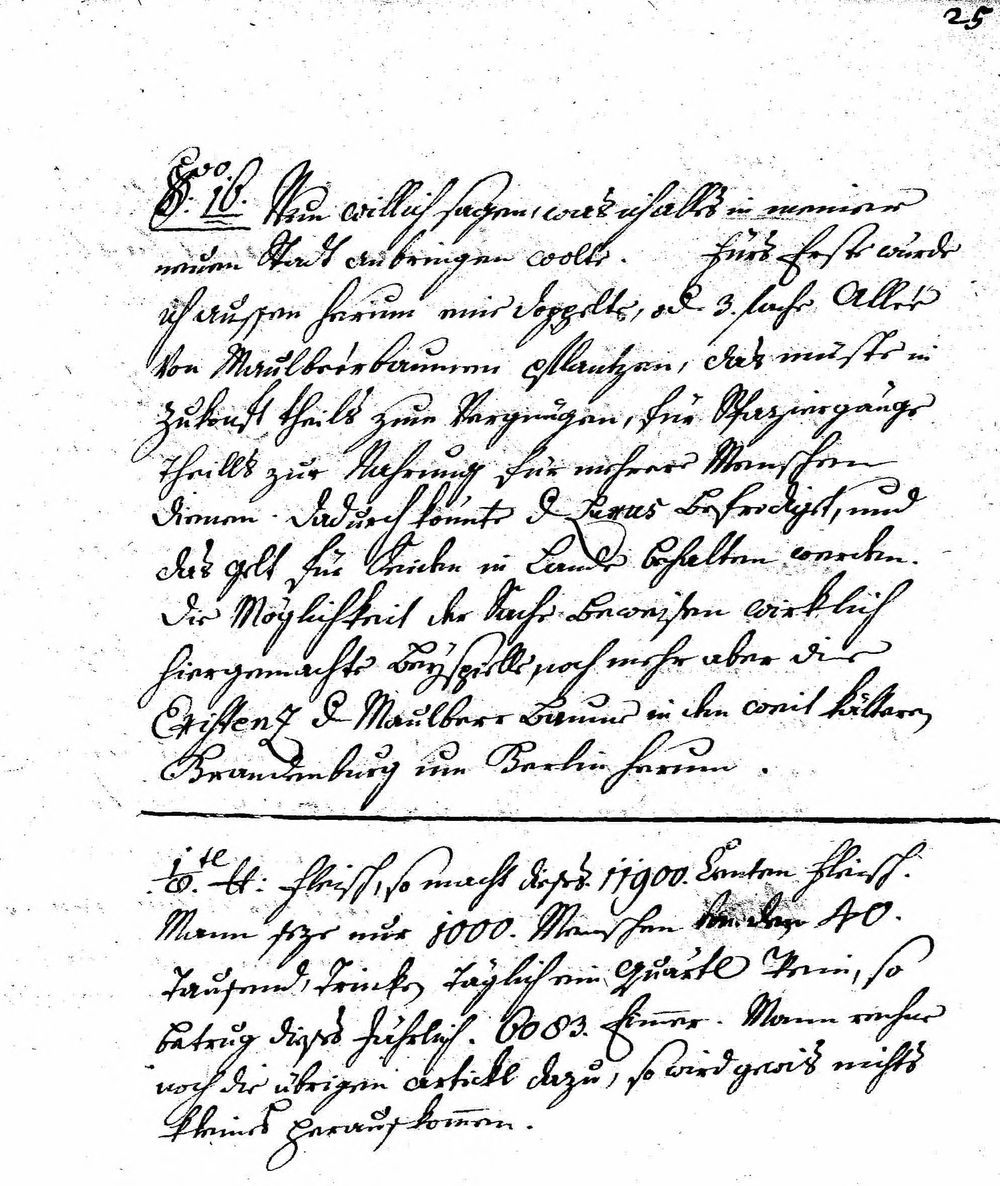 25
§: 16. Nun will ich sagen, was ich alles in meiner
neuen Stadt anbringen wolte. Fürs Erste wurde
ich aussen herum eine doppelte, od 3.fache Allée
von Maulbeerbaumen pflantzen, das müste in
Zukonft theils zum Vergnügen, für Spaziergänge
theills zur Nahrung für mehrere Menschen
dienen. Dadurch könnte d Luxus befredigt, und
das gelt für Seiden in Lande behalten werden.
Die Möglichkeit der Sache beweisen wirklich
hiergemachte Beyspielle, noch mehr aber die
Existenz d Maulberr Baume in den weit kältern
Brandenburg um Berlin herum.
1/8.tl lb: Fleisch, so macht dieses 11900. Centen Fleisch.
Mann seze nur 1000. Menschen von den 40.
Tausend, Trinken täglich ein Quärtl Wein, so
betrug dieses Jährlich. 6083. Eimer. Mann rechne
noch die übrigen artickl dazu, so wird gewis nichts
kleines herauskommen.